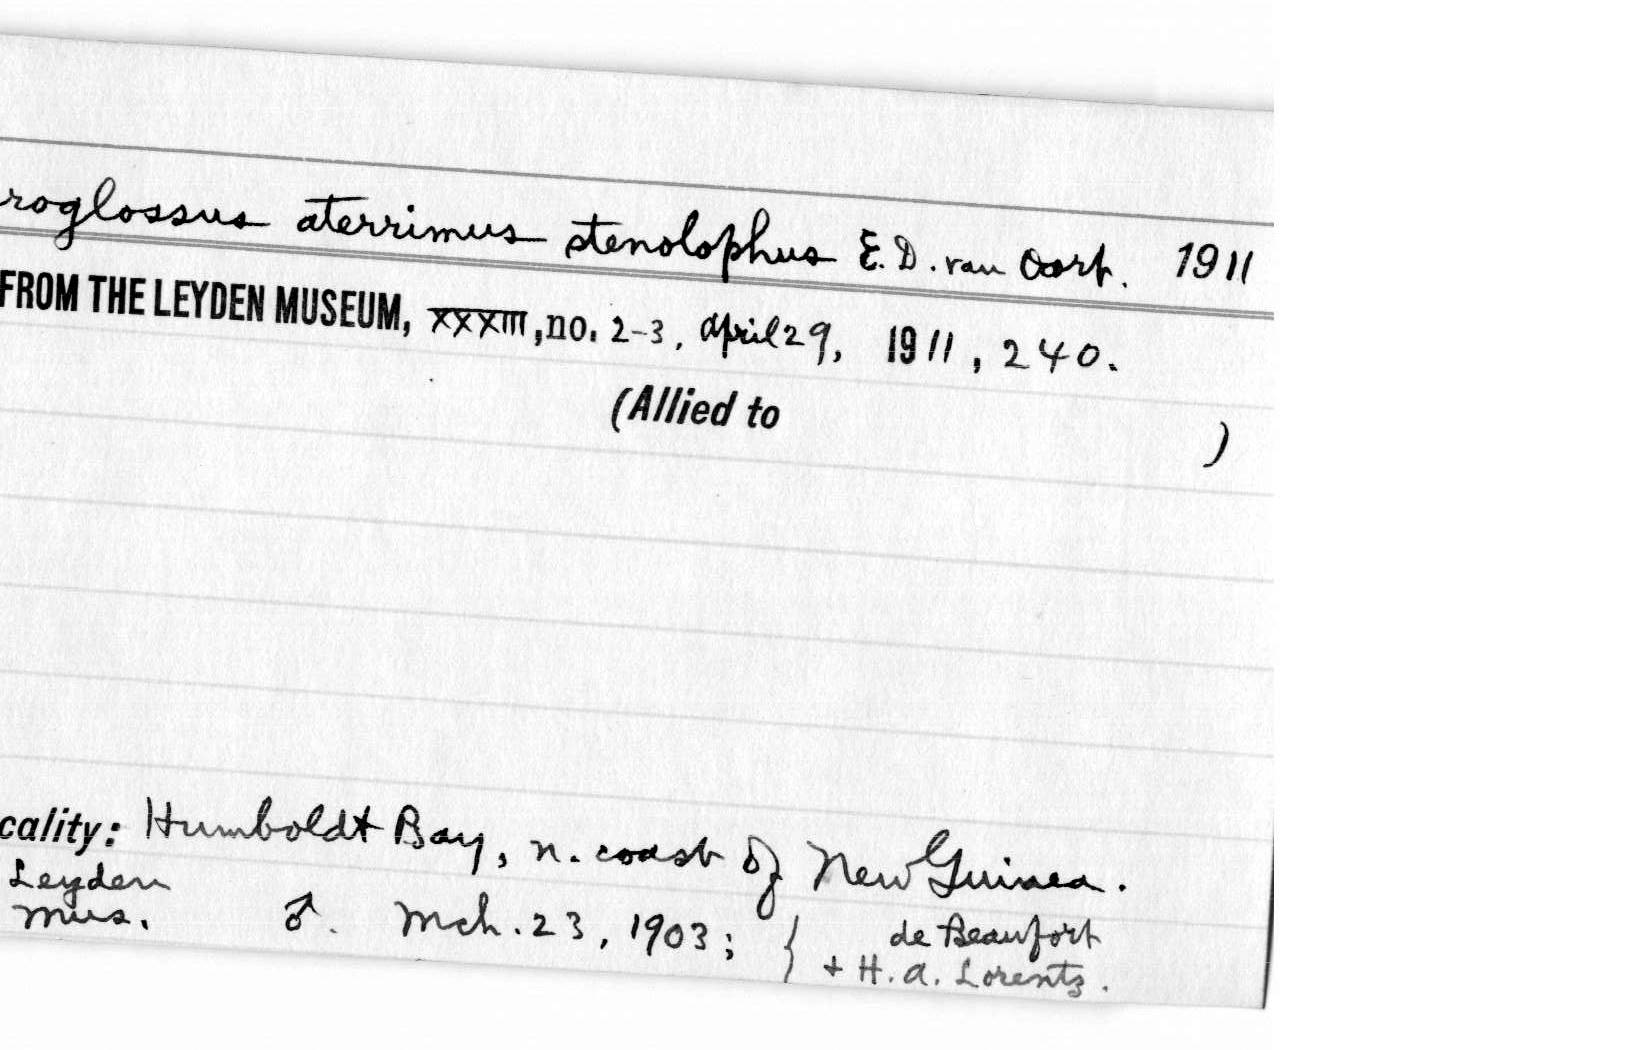 roglossus aterrimus stenolophus E.D. van Oort. 1911
FROM THE LEYDEN MUSEUM, XXXIII, no. 2-3, April 29, 1911, 240.
(Allied to )
cality: Humboldt Bay, n. coast of New Guinea.
Leyden
Mus. ♂. Mch. 23, 1903; { de Beaufort
+ H.A. Lorentz.